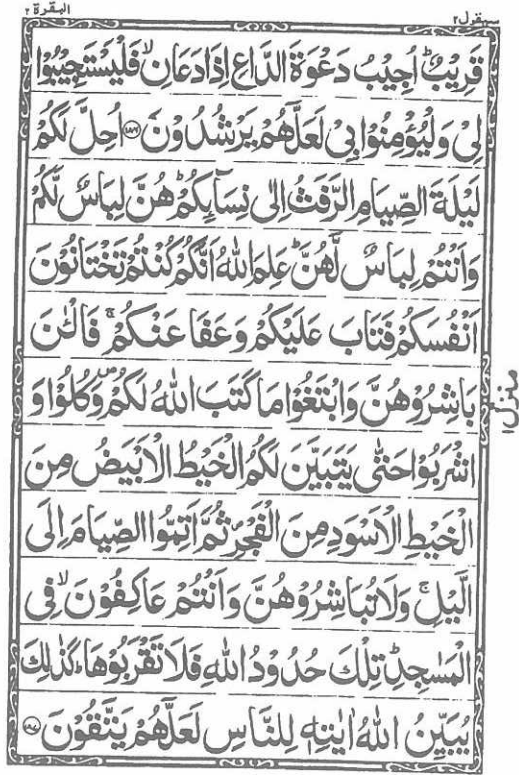 سيقول٢ البقرة ٢
قَرِيْبٌ ؕ اُجِيْبُ دَعْوَةَ الدَّاعِ اِذَا دَعَانِ ۙ فَلْيَسْتَجِيْبُوْا
لِىْ وَلْيُؤْمِنُوْا بِىْ لَعَلَّهُمْ يَرْشُدُوْنَ ﴿۱۸۶﴾ اُحِلَّ لَكُمْ
لَيْلَةَ الصِّيَامِ الرَّفَثُ اِلٰى نِسَآئِكُمْ ؕ هُنَّ لِبَاسٌ لَّكُمْ
وَاَنْتُمْ لِبَاسٌ لَّهُنَّ ؕ عَلِمَ اللّٰهُ اَنَّكُمْ كُنْتُمْ تَخْتَانُوْنَ
اَنْفُسَكُمْ فَتَابَ عَلَيْكُمْ وَعَفَا عَنْكُمْ ۚ فَالْـٰٔنَ
بَاشِرُوْهُنَّ وَابْتَغُوْا مَا كَتَبَ اللّٰهُ لَكُمْ ۪ وَكُلُوْا وَ
اشْرَبُوْا حَتّٰى يَتَبَيَّنَ لَكُمُ الْخَيْطُ الْاَبْيَضُ مِنَ
الْخَيْطِ الْاَسْوَدِ مِنَ الْفَجْرِ ۪ ثُمَّ اَتِمُّوا الصِّيَامَ اِلَى
الَّيْلِ ۚ وَلَا تُبَاشِرُوْهُنَّ وَاَنْتُمْ عَاكِفُوْنَ ۙ فِى
الْمَسٰجِدِ ؕ تِلْكَ حُدُوْدُ اللّٰهِ فَلَا تَقْرَبُوْهَا ؕ كَذٰلِكَ
يُبَيِّنُ اللّٰهُ اٰيٰتِهٖ لِلنَّاسِ لَعَلَّهُمْ يَتَّقُوْنَ ﴿۱۸۷﴾
منزل١